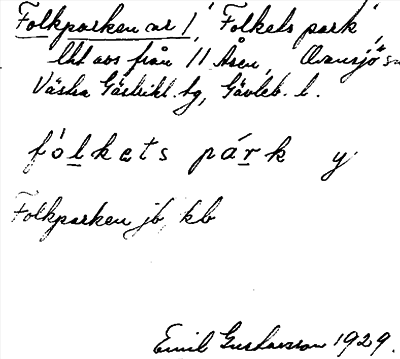 Folkparken avs 1, 'Folkets park',
lht avs från 11 Åsen, Ovansjö sn
Västra Gästrikl. tg, Gävleb. l.
fólkets párk y
Folkparken jb, kb
Emil Gustavsson 1929.